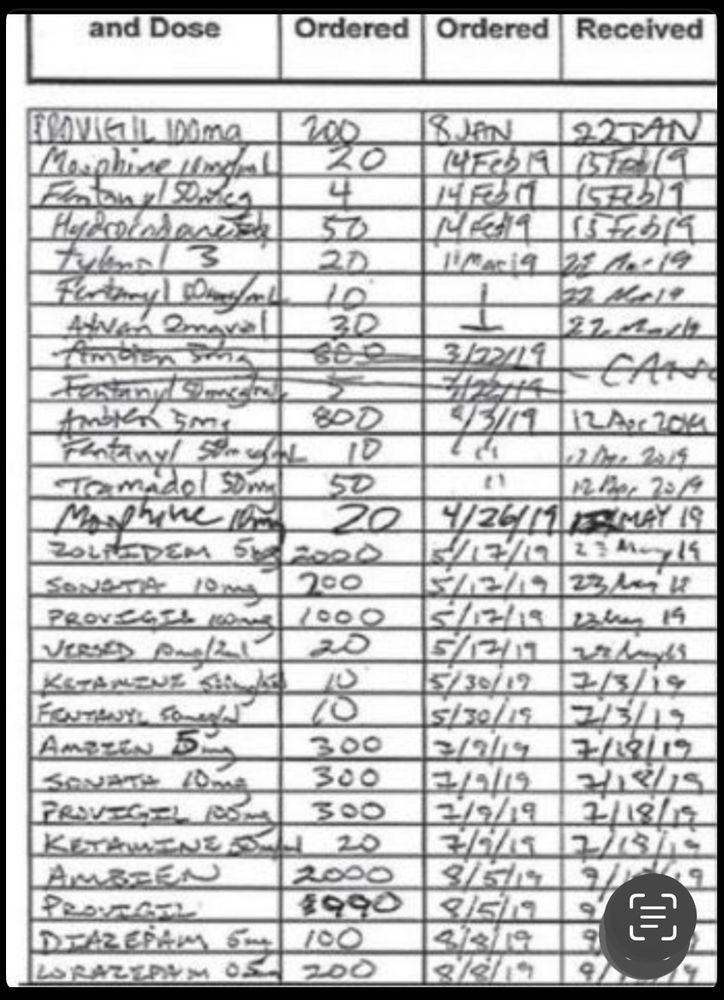 and Dose Ordered Ordered Received
PROVIGIL 100mg 200 8 JAN 22 JAN
Morphine 10mg/mL 20 14 Feb 19 15 Feb 19
Fentanyl 50mcg 4 14 Feb 19 15 Feb 19
50 14 Feb 19 15 Feb 19
Tylenol 3 20 11 Mar 19 22 Mar 19
Fentanyl 10 22 Mar 19
Ativan 2mg vial 30 Mar 19
Ambien 5mg 800 3/22/19
Fentanyl 50mcg/mL 5 3/22/19 CANC
Ambien 5mg 800 4/3/19 12 Apr 2019
Fentanyl 50mcg/mL 10 " 12 Apr 2019
Tramadol 50mg 50 " 12 Apr 2019
Morphine 10mg 20 4/26/19 MAY 19
ZOLPIDEM 5mg 2000 5/17/19 23 May 19
SONATA 10mg 200 5/17/19 23 May 19
PROVIGIL 100mg 1000 5/17/19 23 May 19
VERSED 10mg/2ml 20 5/17/19 May 19
KETAMINE 10 5/30/19 7/3/19
FENTANYL 50mcg/ml 10 5/30/19 7/3/19
AMBIEN 5mg 300 7/9/19 7/18/19
SONATA 10mg 300 7/9/19 7/18/19
PROVIGIL 100mg 300 7/9/19 7/18/19
KETAMINE 20 7/9/19 7/18/19
AMBIEN 2000 8/5/19
PROVIGIL 990 8/5/19
DIAZEPAM 5mg 100 8/8/19
LORAZEPAM 0.5mg 200 8/8/19